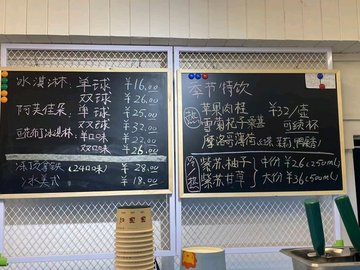 冰淇淋: 单球 ¥16.00
双球 ¥26.00
阿芙佳朵: 单球 ¥25.00
双球 ¥32.00
冰淇淋: 单口味 ¥23.00
双口味 ¥26.00
(240ml) ¥28.00
冰美式 ¥18.00
季节特饮
热
苹果肉桂 ¥32/壶
雪菊杞子桑葚 可续杯
摩洛哥薄荷
冷/热
紫苏柚子 中价 ¥26(250mL)
紫苏甘草 大价 ¥36(500mL)